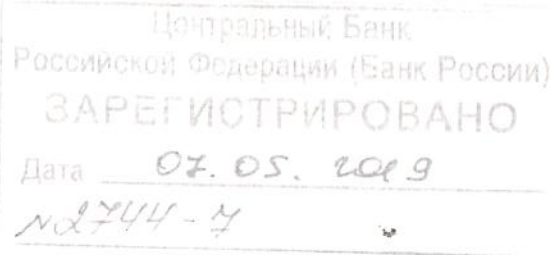 Центральный Банк
Российской Федерации (Банк России)
ЗАРЕГИСТРИРОВАНО
Дата 07.05.2019
№2744-7